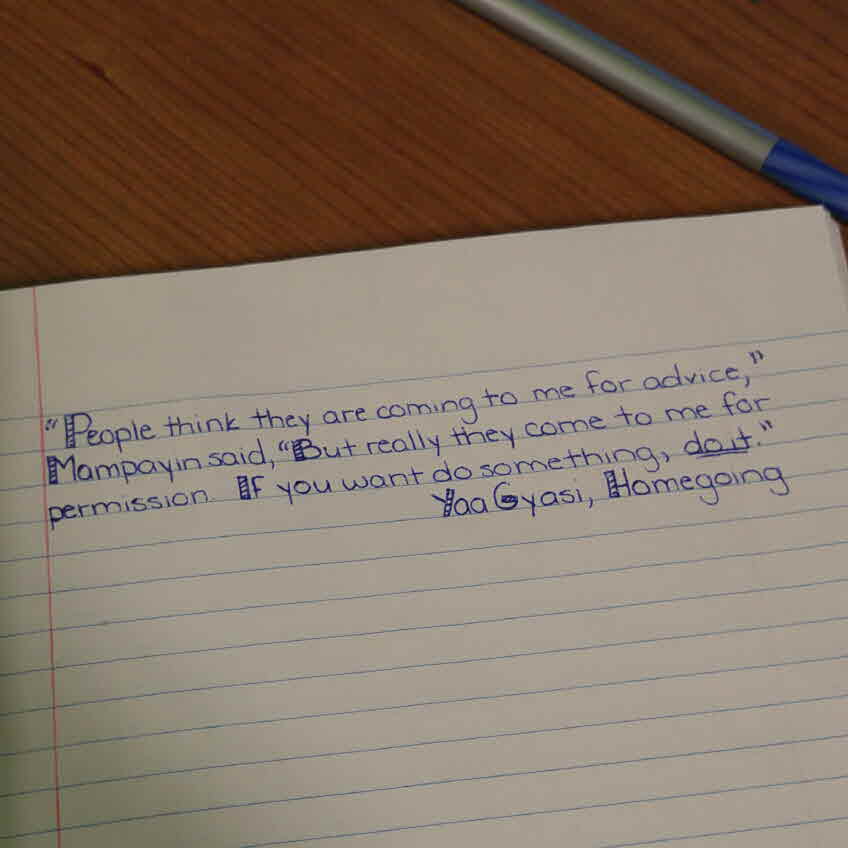 "People think they are coming to me for advice,"
Mampayin said, "But really they come to me for
permission. If you want do something, do it."
Yaa Gyasi, Homegoing